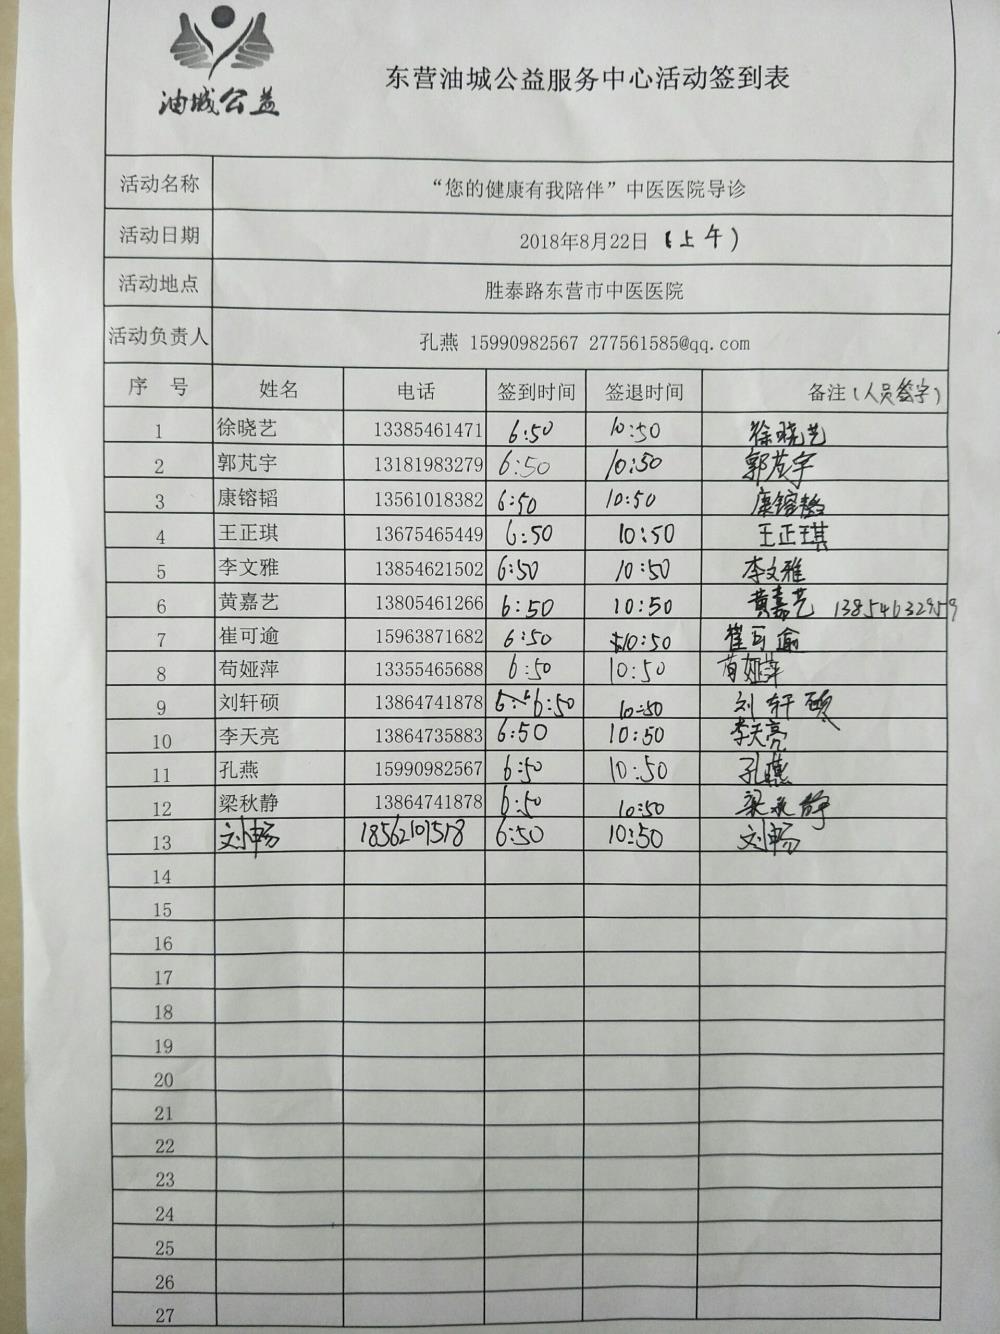 油城公益
东营油城公益服务中心活动签到表
活动名称 “您的健康有我陪伴”中医医院导诊
活动日期 2018年8月22日 (上午)
活动地点 胜泰路东营市中医医院
活动负责人 孔燕 15990982567 277561585@qq.com
序 号 姓名 电话 签到时间 签退时间 备注(人员签字)
1 徐晓艺 13385461471 6:50 10:50 徐晓艺
2 郭芃宇 13181983279 6:50 10:50 郭芃宇
3 康镕韬 13561018382 6:50 10:50 康镕韬
4 王正琪 13675465449 6:50 10:50 王正琪
5 李文雅 13854621502 6:50 10:50 李文雅
6 黄嘉艺 13805461266 6:50 10:50 黄嘉艺 13854632959
7 崔可逾 15963871682 6:50 10:50 崔可逾
8 荀娅萍 13355465688 6:50 10:50 荀娅萍
9 刘轩硕 13864741878 6:50 10:50 刘轩硕
10 李天亮 13864735883 6:50 10:50 李天亮
11 孔燕 15990982567 6:50 10:50 孔燕
12 梁秋静 13864741878 6:50 10:50 梁秋静
13 刘畅 18562101518 6:50 10:50 刘畅
14
15
16
17
18
19
20
21
22
23
24
25
26
27